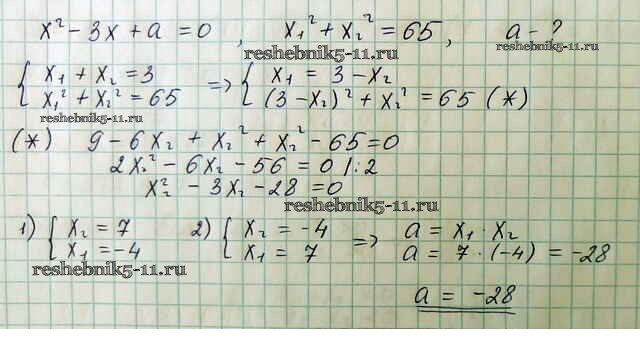 x² - 3x + a = 0 , x₁² + x₂² = 65, a - ?
reshebnik5-11.ru
{ x₁ + x₂ = 3 => { x₁ = 3 - x₂
{ x₁² + x₂² = 65 { (3 - x₂)² + x₂² = 65 (*)
reshebnik5-11.ru
(*) 9 - 6x₂ + x₂² + x₂² - 65 = 0
2x₂² - 6x₂ - 56 = 0 |:2
x₂² - 3x₂ - 28 = 0
reshebnik5-11.ru
1) { x₂ = 7 2) { x₂ = -4 => a = x₁ · x₂
{ x₁ = -4 { x₁ = 7 a = 7 · (-4) = -28
reshebnik5-11.ru
a = -28